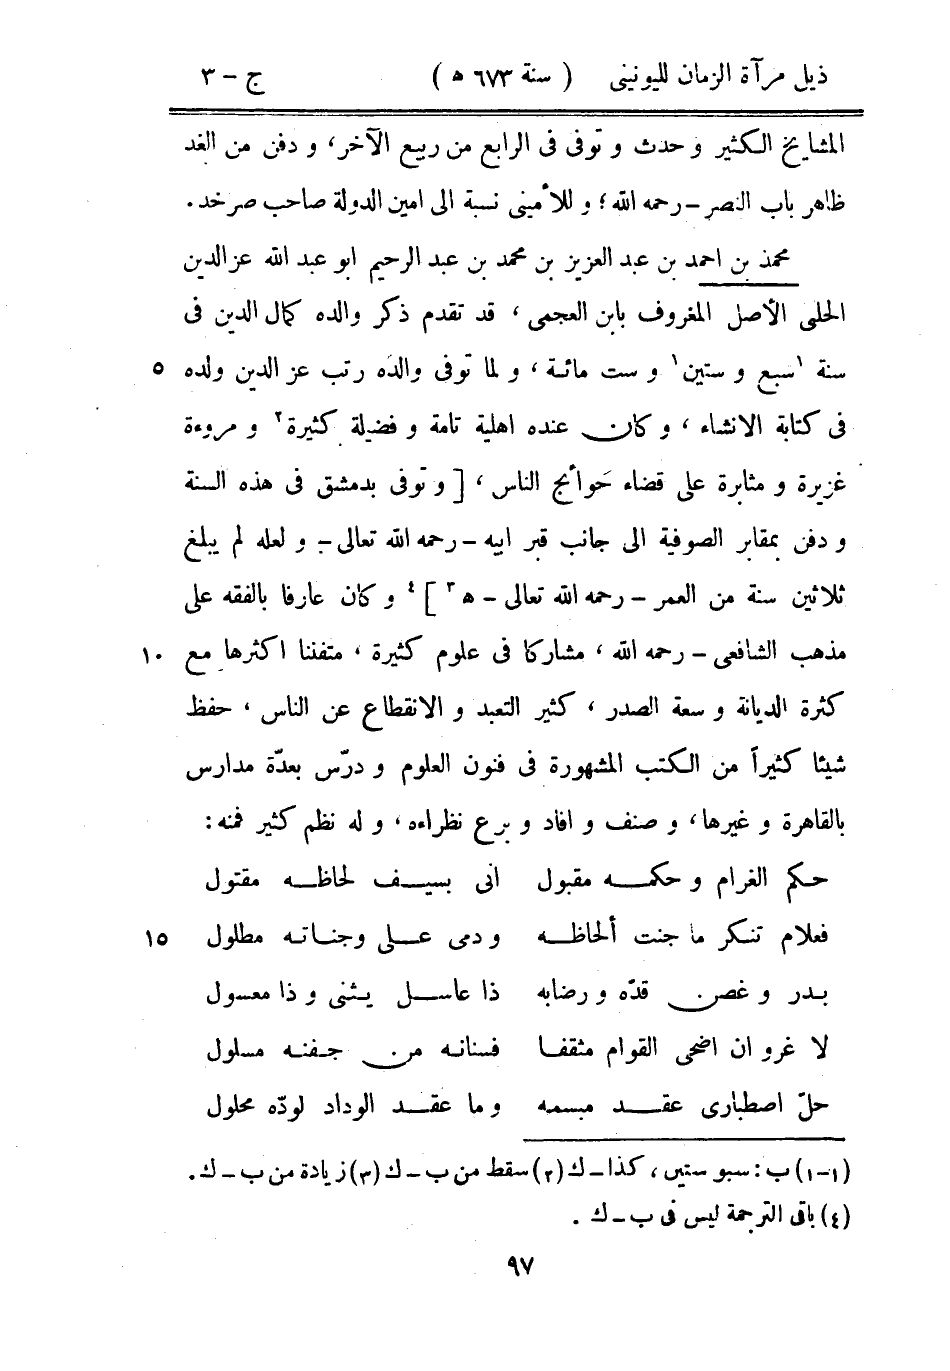 ذيل مرآة الزمان لليونينى ( سنة ٦٧٣ هـ ) ج - ٣
المشايخ الكثير و حدث و توفى فى الرابع من ربيع الآخر، و دفن من الغد
ظاهر باب النصر - رحمه الله ؛ و للأمينى نسبة الى امين الدولة صاحب صرخد .
محمد بن احمد بن عبد العزيز بن محمد بن عبد الرحيم ابو عبد الله عز الدين
الحلبى الأصل المعروف بابن العجمى ، قد تقدم ذكر والده كمال الدين فى
سنة ١سبع و ستين١ و ست مائة ، و لما توفى والده رتب عز الدين ولده ٥
فى كتابة الانشاء ، و كان عنده اهلية تامة و فضيلة كثيرة٢ و مروءة
غزيرة و مثابرة على قضاء حوائج الناس ، [ و توفى بدمشق فى هذه السنة
و دفن بمقابر الصوفية الى جانب قبر ابيه - رحمه الله تعالى - و لعله لم يبلغ
ثلاثين سنة من العمر - رحمه الله تعالى - هـ٣ ]٤ و كان عارفا بالفقه على
مذهب الشافعى - رحمه الله ، مشاركا فى علوم كثيرة ، متفننا اكثرها مع ١٠
كثرة الديانة و سعة الصدر ، كثير التعبد و الانقطاع عن الناس ، حفظ
شيئا كثيراً من الكتب المشهورة فى فنون العلوم و درّس بعدّة مدارس
بالقاهرة و غيرها، و صنف و افاد و برع نظراءه، و له نظم كثير فمنه :
حكم الغرام و حكمه مقبول انى بسيف لحاظه مقتول
فعلام تنكر ما جنت ألحاظه و دمى على وجناته مطلول ١٥
بدر و غصن قدّه و رضابه ذا عاسل يثنى و ذا معسول
لا غرو ان اضحى القوام مثقفا فسنانه من جفنه مسلول
حلّ اصطبارى عقد مبسمه و ما عقد الوداد لودّه محلول
(١-١) ب : سبو ستين ، كذا - ك (٢) سقط من ب - ك (٣) زيادة من ب - ك .
(٤) باقى الترجمة ليس فى ب - ك .
٩٧